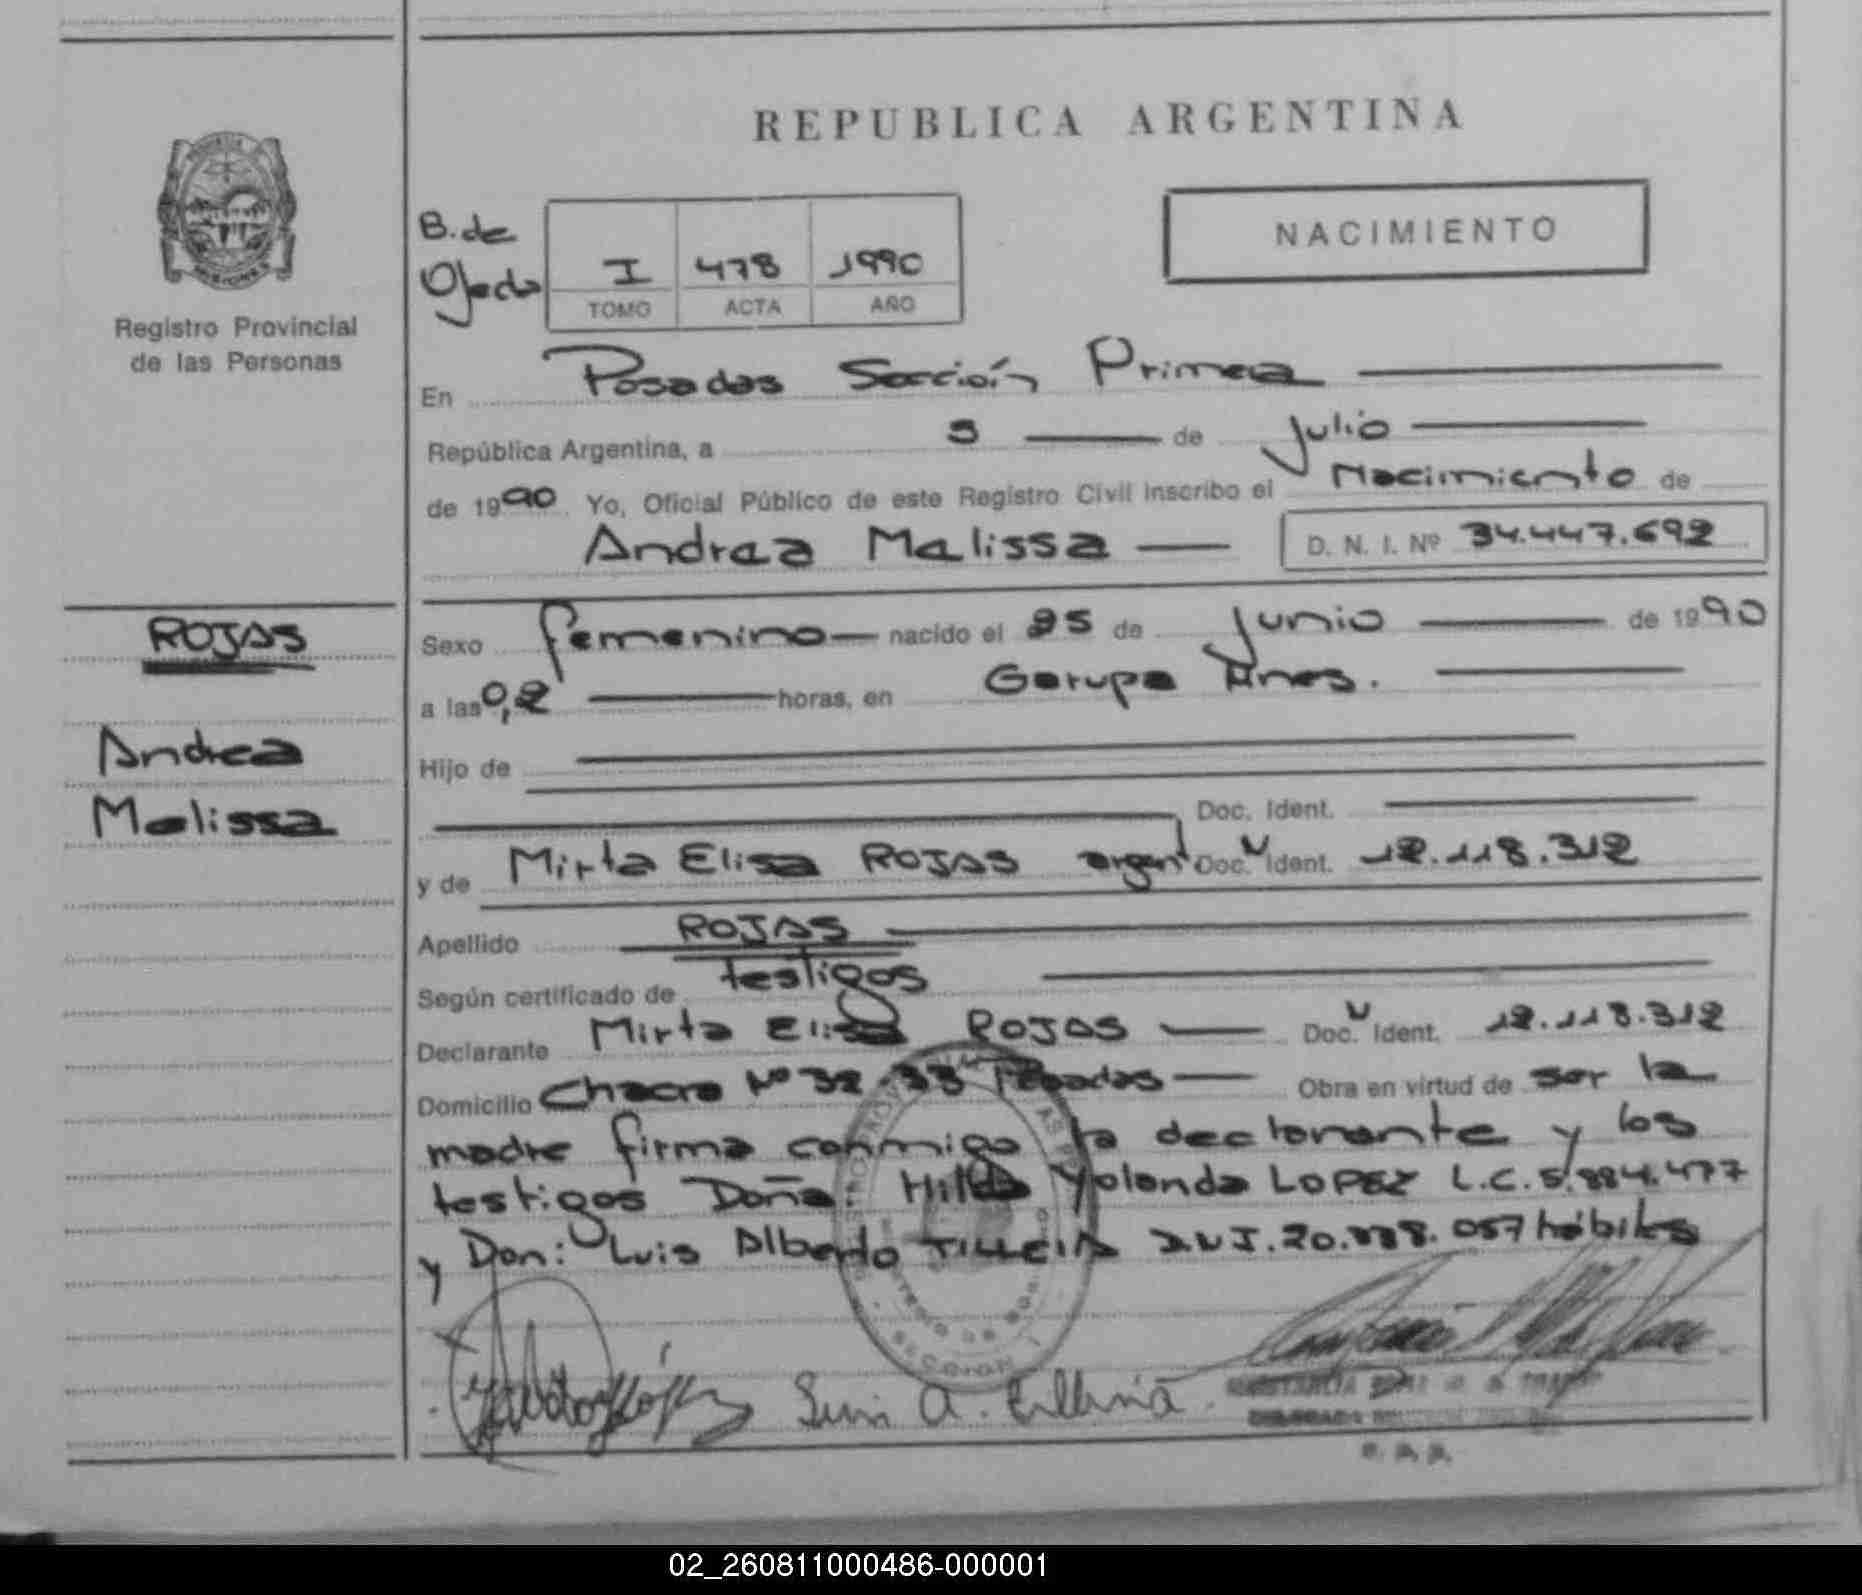 REPUBLICA ARGENTINA
NACIMIENTO
B. de
Ojeda
I 478 1990
TOMO ACTA AÑO
Registro Provincial
de las Personas
En Posadas Sección Primera
República Argentina, a 5 de Julio
de 1990 Yo, Oficial Público de este Registro Civil inscribo el Nacimiento de
Andrea Melissa D. N. I. Nº 34.447.692
ROJAS
Andrea
Melissa
Sexo femenino nacido el 25 de Junio de 1990
a las 0,2 horas, en Garupa Mnes.
Hijo de
Doc. Ident.
y de Mirta Elisa ROJAS argent Doc. Ident. 12.118.312
Apellido ROJAS
Según certificado de testigos
Declarante Mirta Elisa ROJAS Doc. Ident. 12.118.312
Domicilio Chacra Nº 32-33 Posadas Obra en virtud de ser la
madre firma conmigo la declarante y los
testigos Doña: Hilda Yolanda LOPEZ L.C. 5.884.477
y Don: Luis Alberto D.N.I. 20.338.057 hábiles
Luis A.
SECCION
02_260811000486-000001